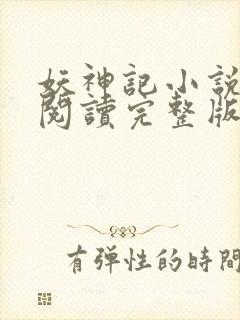 妖神記小說
閱讀完整版
有弹性的時間